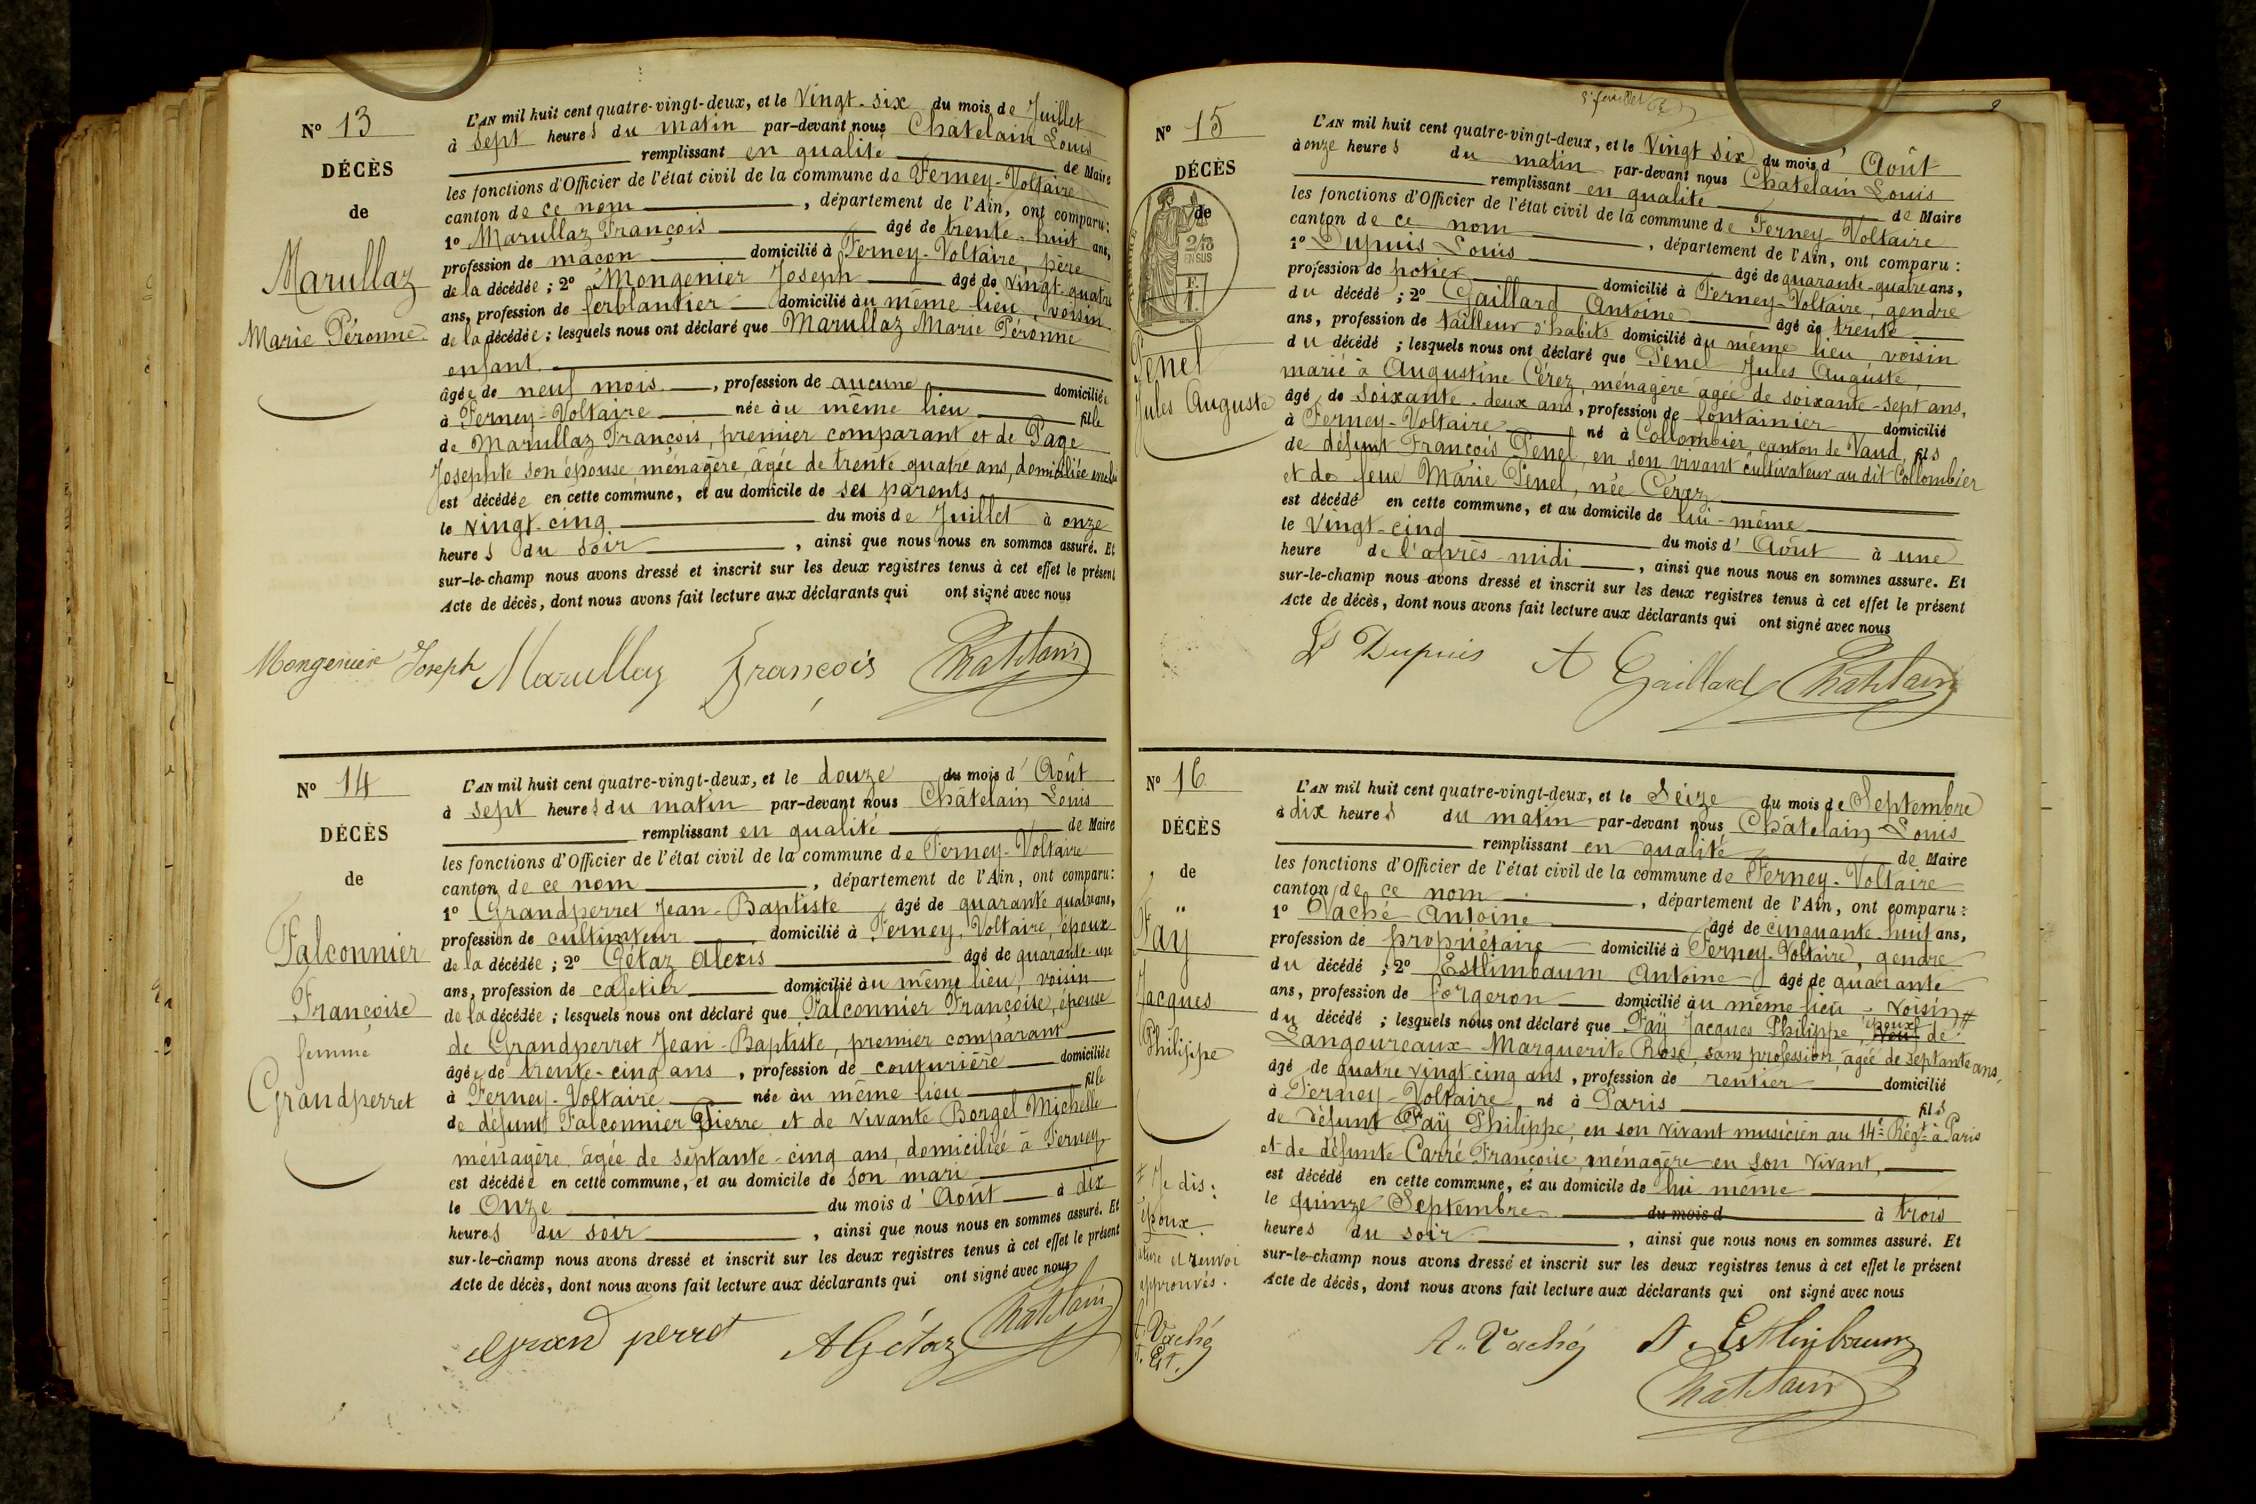 N° 13
DÉCÈS
de
Marullaz
Marie Péronne
L'AN mil huit cent quatre-vingt-deux, et le Vingt-six du mois de Juillet
à sept heures du matin par-devant nous Châtelain Louis
remplissant en qualité de Maire
les fonctions d'Officier de l'état civil de la commune de Ferney-Voltaire
canton de ce nom, département de l'Ain, ont comparu:
1° Marullaz François âgé de trente-huit ans,
profession de maçon domicilié à Ferney-Voltaire, père
de la décédée ; 2° Mongenier Joseph âgé de vingt-quatre
ans, profession de ferblantier domicilié au même lieu, voisin
de la décédée ; lesquels nous ont déclaré que Marullaz Marie Péronne
enfant
âgée de neuf mois, profession de aucune domiciliée
à Ferney-Voltaire née au même lieu fille
de Marullaz François, premier comparant et de Page
Josephte son épouse ménagère, âgée de trente quatre ans, domiciliée
est décédée en cette commune, et au domicile de ses parents
le vingt-cinq du mois de Juillet à onze
heures du soir, ainsi que nous nous en sommes assuré. Et
sur-le-champ nous avons dressé et inscrit sur les deux registres tenus à cet effet le présent
Acte de décès, dont nous avons fait lecture aux déclarants qui ont signé avec nous
Mongenier Joseph Marullaz François Chatelain
N° 14
DÉCÈS
de
Falconnier
Françoise
femme
Grandperret
L'AN mil huit cent quatre-vingt-deux, et le douze du mois d'Août
à sept heures du matin par-devant nous Châtelain Louis
remplissant en qualité de Maire
les fonctions d'Officier de l'état civil de la commune de Ferney-Voltaire
canton de ce nom, département de l'Ain, ont comparu:
1° Grandperret Jean-Baptiste âgé de quarante quatre ans,
profession de cultivateur domicilié à Ferney-Voltaire, époux
de la décédée ; 2° Gétaz Alexis âgé de quarante-un
ans, profession de cafetier domicilié au même lieu, voisin
de la décédée ; lesquels nous ont déclaré que Falconnier Françoise, épouse
de Grandperret Jean-Baptiste, premier comparant
âgée de trente-cinq ans, profession de couturière domiciliée
à Ferney-Voltaire née au même lieu fille
de défunt Falconnier Pierre et de vivante Borgel Michelle
ménagère âgée de septante-cinq ans, domiciliée à Ferney
est décédée en cette commune, et au domicile de son mari
le Onze du mois d'Août à dix
heures du soir, ainsi que nous nous en sommes assuré. Et
sur-le-champ nous avons dressé et inscrit sur les deux registres tenus à cet effet le présent
Acte de décès, dont nous avons fait lecture aux déclarants qui ont signé avec nous
Grand perret A Gétaz Chatelain
2
N° 15
DÉCÈS
de
Penel
Jules Auguste
L'AN mil huit cent quatre-vingt-deux, et le Vingt six du mois d'Août
à onze heures du matin par-devant nous Chatelain Louis
remplissant en qualité de Maire
les fonctions d'Officier de l'état civil de la commune de Ferney-Voltaire
canton de ce nom, département de l'Ain, ont comparu :
1° Dupuis Louis âgé de quarante-quatre ans,
profession de potier domicilié à Ferney-Voltaire, gendre
du décédé ; 2° Gaillard Antoine âgé de trente
ans, profession de tailleur d'habits domicilié au même lieu voisin
du décédé ; lesquels nous ont déclaré que Penel Jules Auguste,
marié à Augustine Cérez, ménagère âgée de soixante-sept ans,
âgé de soixante-deux ans, profession de fontainier domicilié
à Ferney-Voltaire né à Collombier, canton de Vaud, fils
de défunt François Penel, en son vivant cultivateur au dit Collombier
et de feue Marie Penel, née Cérez
est décédé en cette commune, et au domicile de lui-même
le Vingt-cinq du mois d'Août à une
heure de l'après-midi, ainsi que nous nous en sommes assuré. Et
sur-le-champ nous avons dressé et inscrit sur les deux registres tenus à cet effet le présent
Acte de décès, dont nous avons fait lecture aux déclarants qui ont signé avec nous
Ls Dupuis A Gaillard Chatelain
N° 16
DÉCÈS
de
Faÿ
Jacques
Philippe
L'AN mil huit cent quatre-vingt-deux, et le Seize du mois de Septembre
à dix heures du matin par-devant nous Châtelain Louis
remplissant en qualité de Maire
les fonctions d'Officier de l'état civil de la commune de Ferney-Voltaire
canton de ce nom, département de l'Ain, ont comparu :
1° Vaché Antoine âgé de cinquante-huit ans,
profession de propriétaire domicilié à Ferney-Voltaire, gendre
du décédé ; 2° Estlimbaum Antoine âgé de quarante
ans, profession de forgeron domicilié au même lieu, voisin #
du décédé ; lesquels nous ont déclaré que Faÿ Jacques Philippe, époux veuf de
Langoureaux Marguerite Rose, sans profession, âgée de septante ans,
âgé de quatre vingt cinq ans, profession de rentier domicilié
à Ferney-Voltaire né à Paris fils
de défunt Faÿ Philippe, en son vivant musicien au 14e Régt à Paris
et de défunte Carré Françoise, ménagère en son vivant,
est décédé en cette commune, et au domicile de lui même
le quinze Septembre du mois d à trois
heures du soir, ainsi que nous nous en sommes assuré. Et
sur-le-champ nous avons dressé et inscrit sur les deux registres tenus à cet effet le présent
Acte de décès, dont nous avons fait lecture aux déclarants qui ont signé avec nous
# Je dis :
époux
et renvoi
approuvés.
A. Vaché
A. Est.
A. Vaché A. Estlinbaum
Chatelain